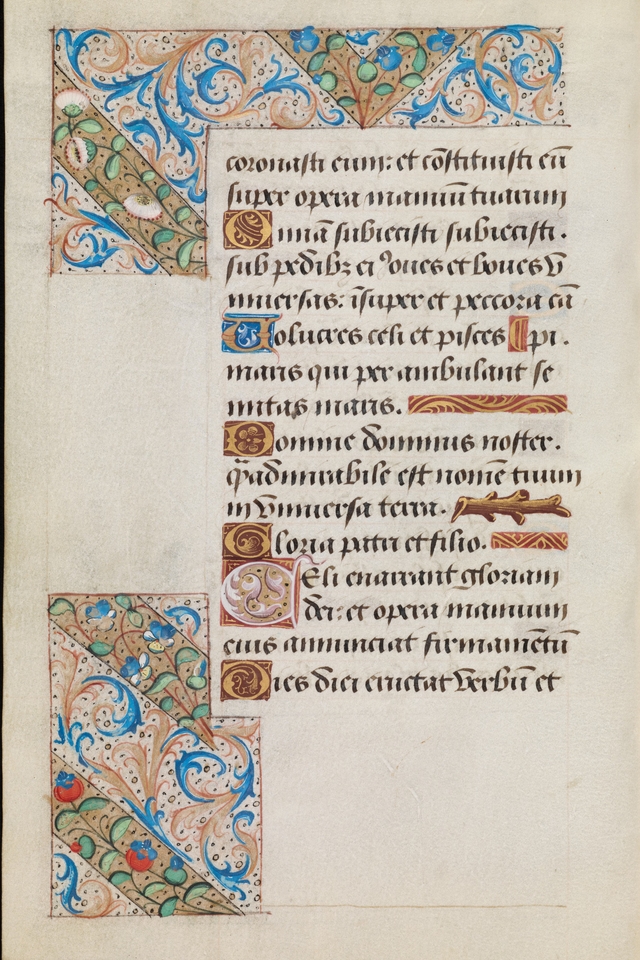 coronasti eum: et cōstituisti eū
super opera manuū tuarum
Omā subiecisti subiecisti.
sub pedibz eiꝰ oues et boues v̄
niuersas: īsuper et peccora cā
Uolucres celi et pisces pi.
maris qui per ambulant se
mitas maris.
Domine dominus noster.
q̄ admirabile est nomē tuum
in vniuersa terra.
Gloria patri et filio.
Celi enarrant gloriam
dei: et opera manuum
eius annunciat firmamētū
Dies diei eructat verbū et